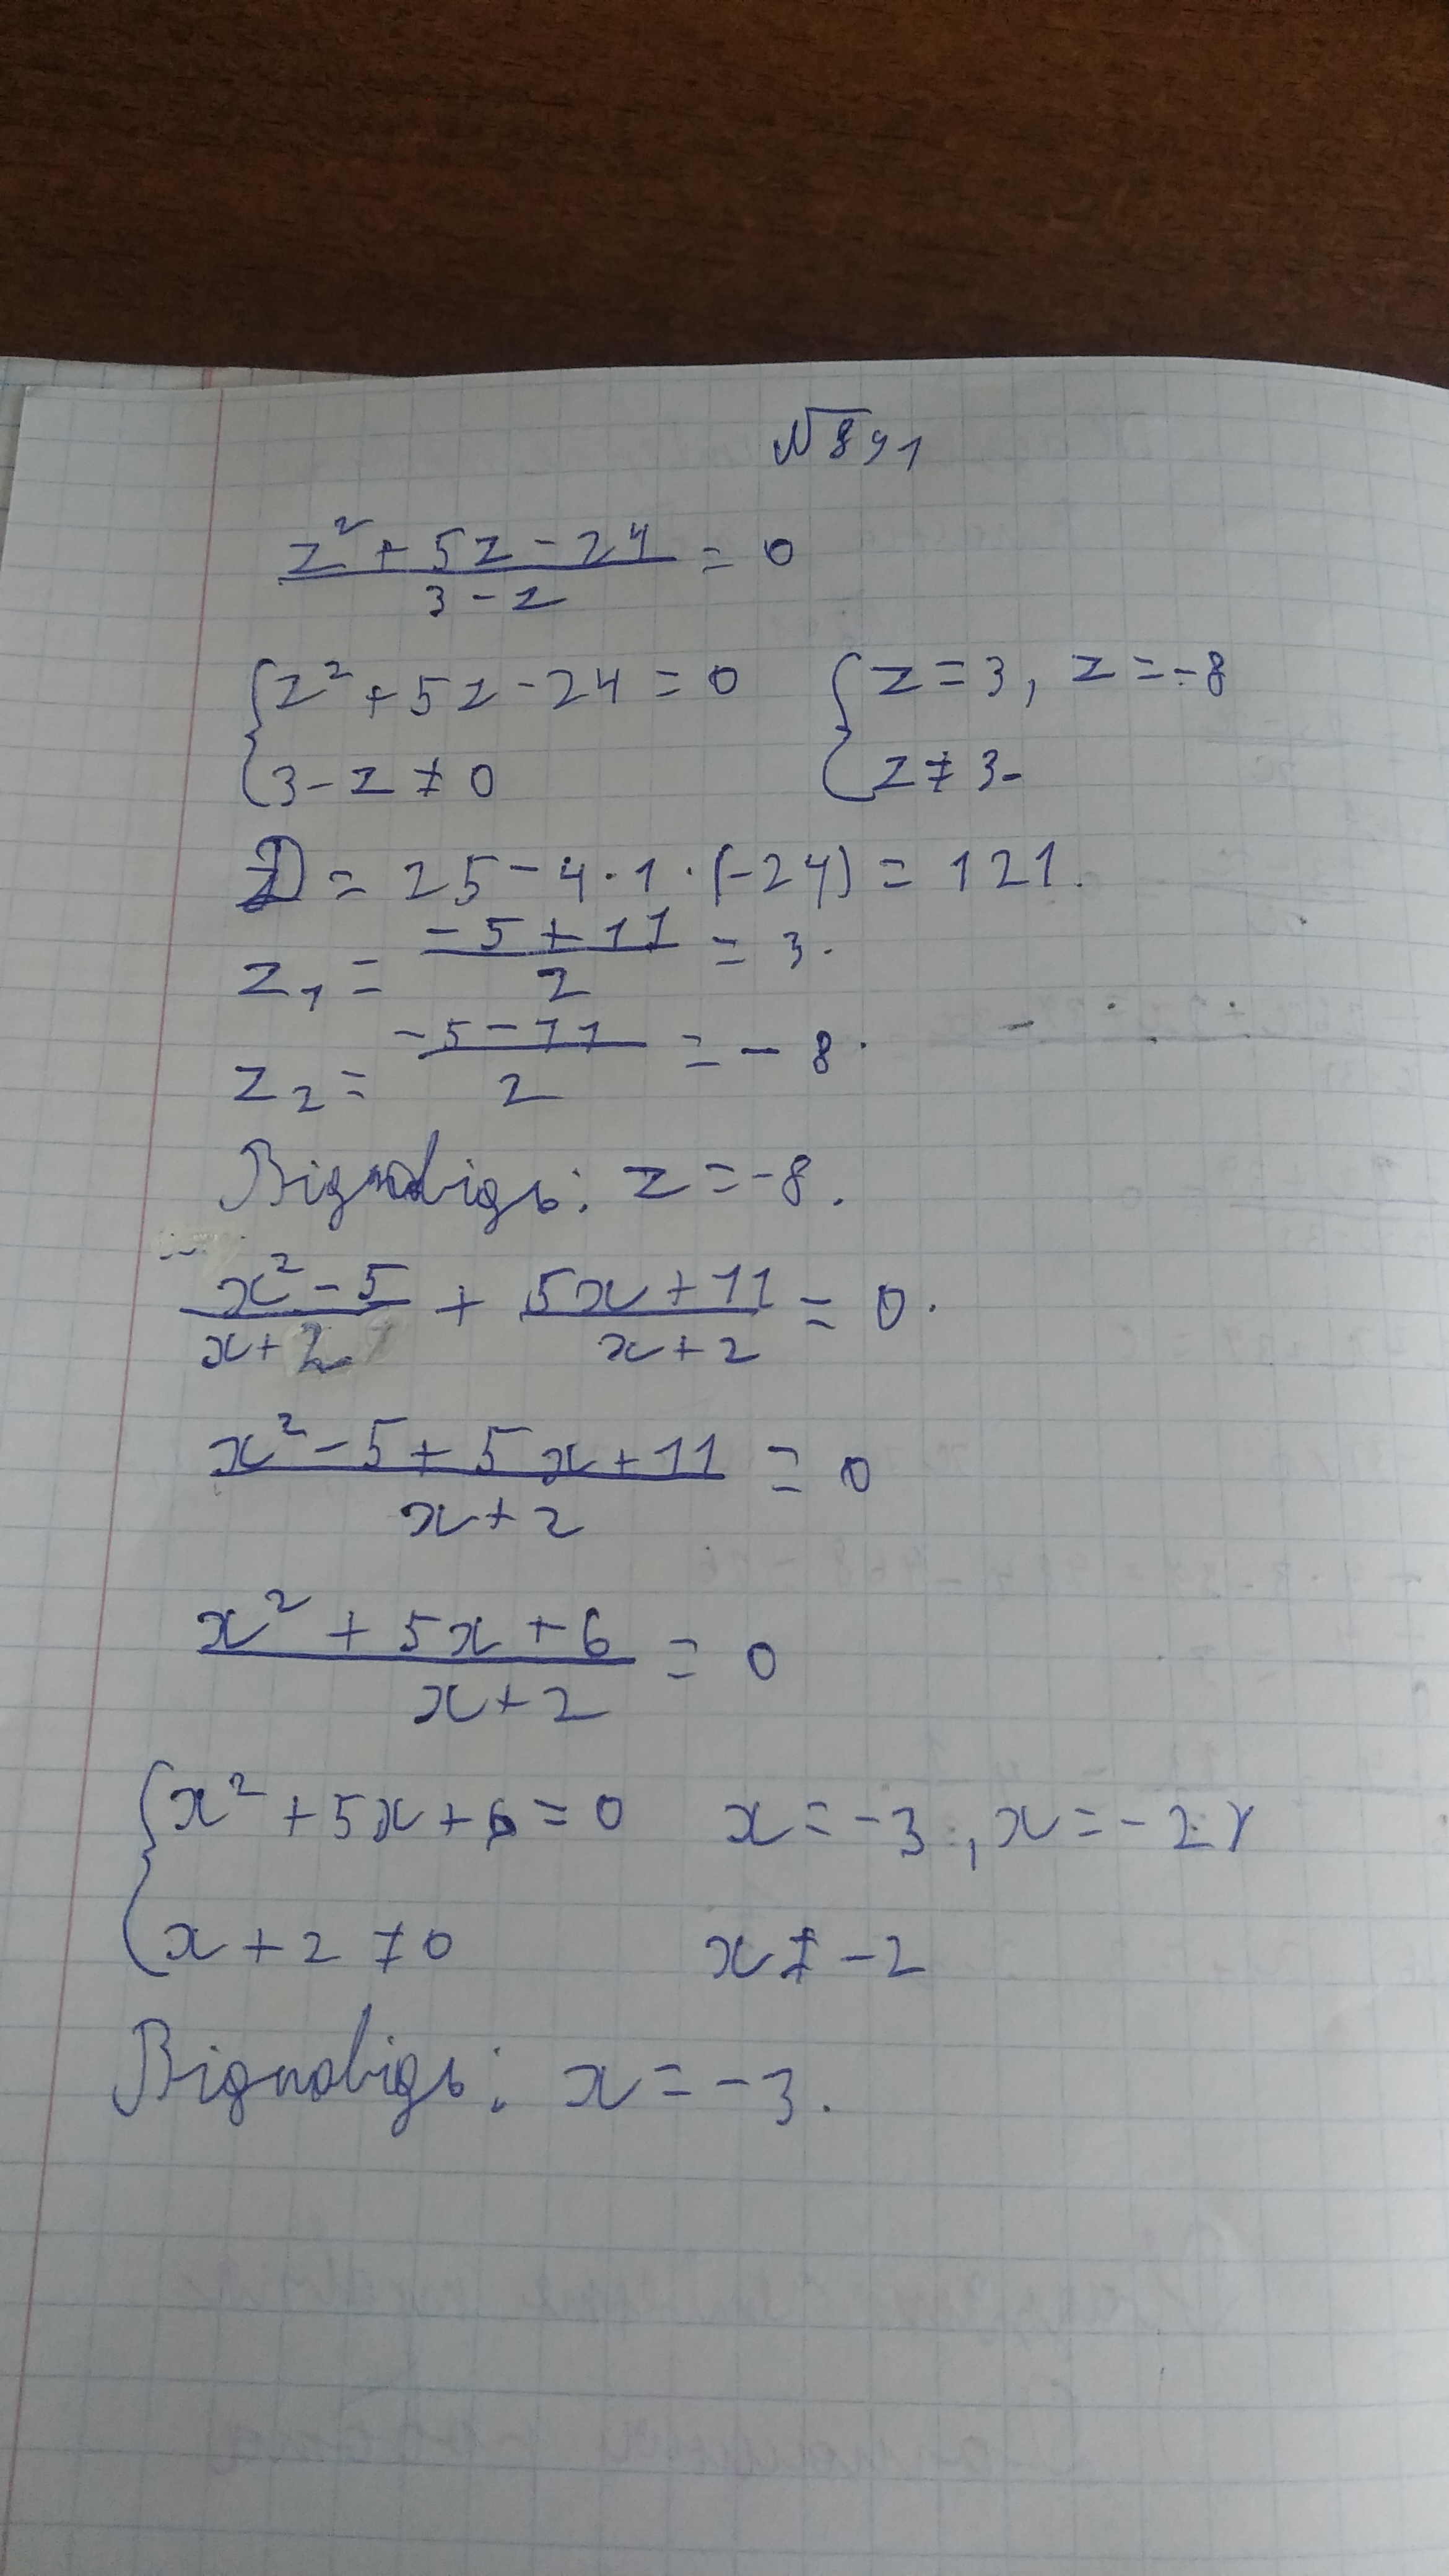 №891
z² + 5z - 24 / 3 - z = 0
{ z² + 5z - 24 = 0 { z = 3, z = -8
{ 3 - z ≠ 0 { z ≠ 3.
D = 25 - 4 · 1 · (-24) = 121.
z₁ = -5 + 11 / 2 = 3.
z₂ = -5 - 11 / 2 = -8.
Відповідь: z = -8.
x² - 5 / x + 2 + 5x + 11 / x + 2 = 0.
x² - 5 + 5x + 11 / x + 2 = 0
x² + 5x + 6 / x + 2 = 0
{ x² + 5x + 6 = 0 x = -3, x = -2
{ x + 2 ≠ 0 x ≠ -2
Відповідь: x = -3.